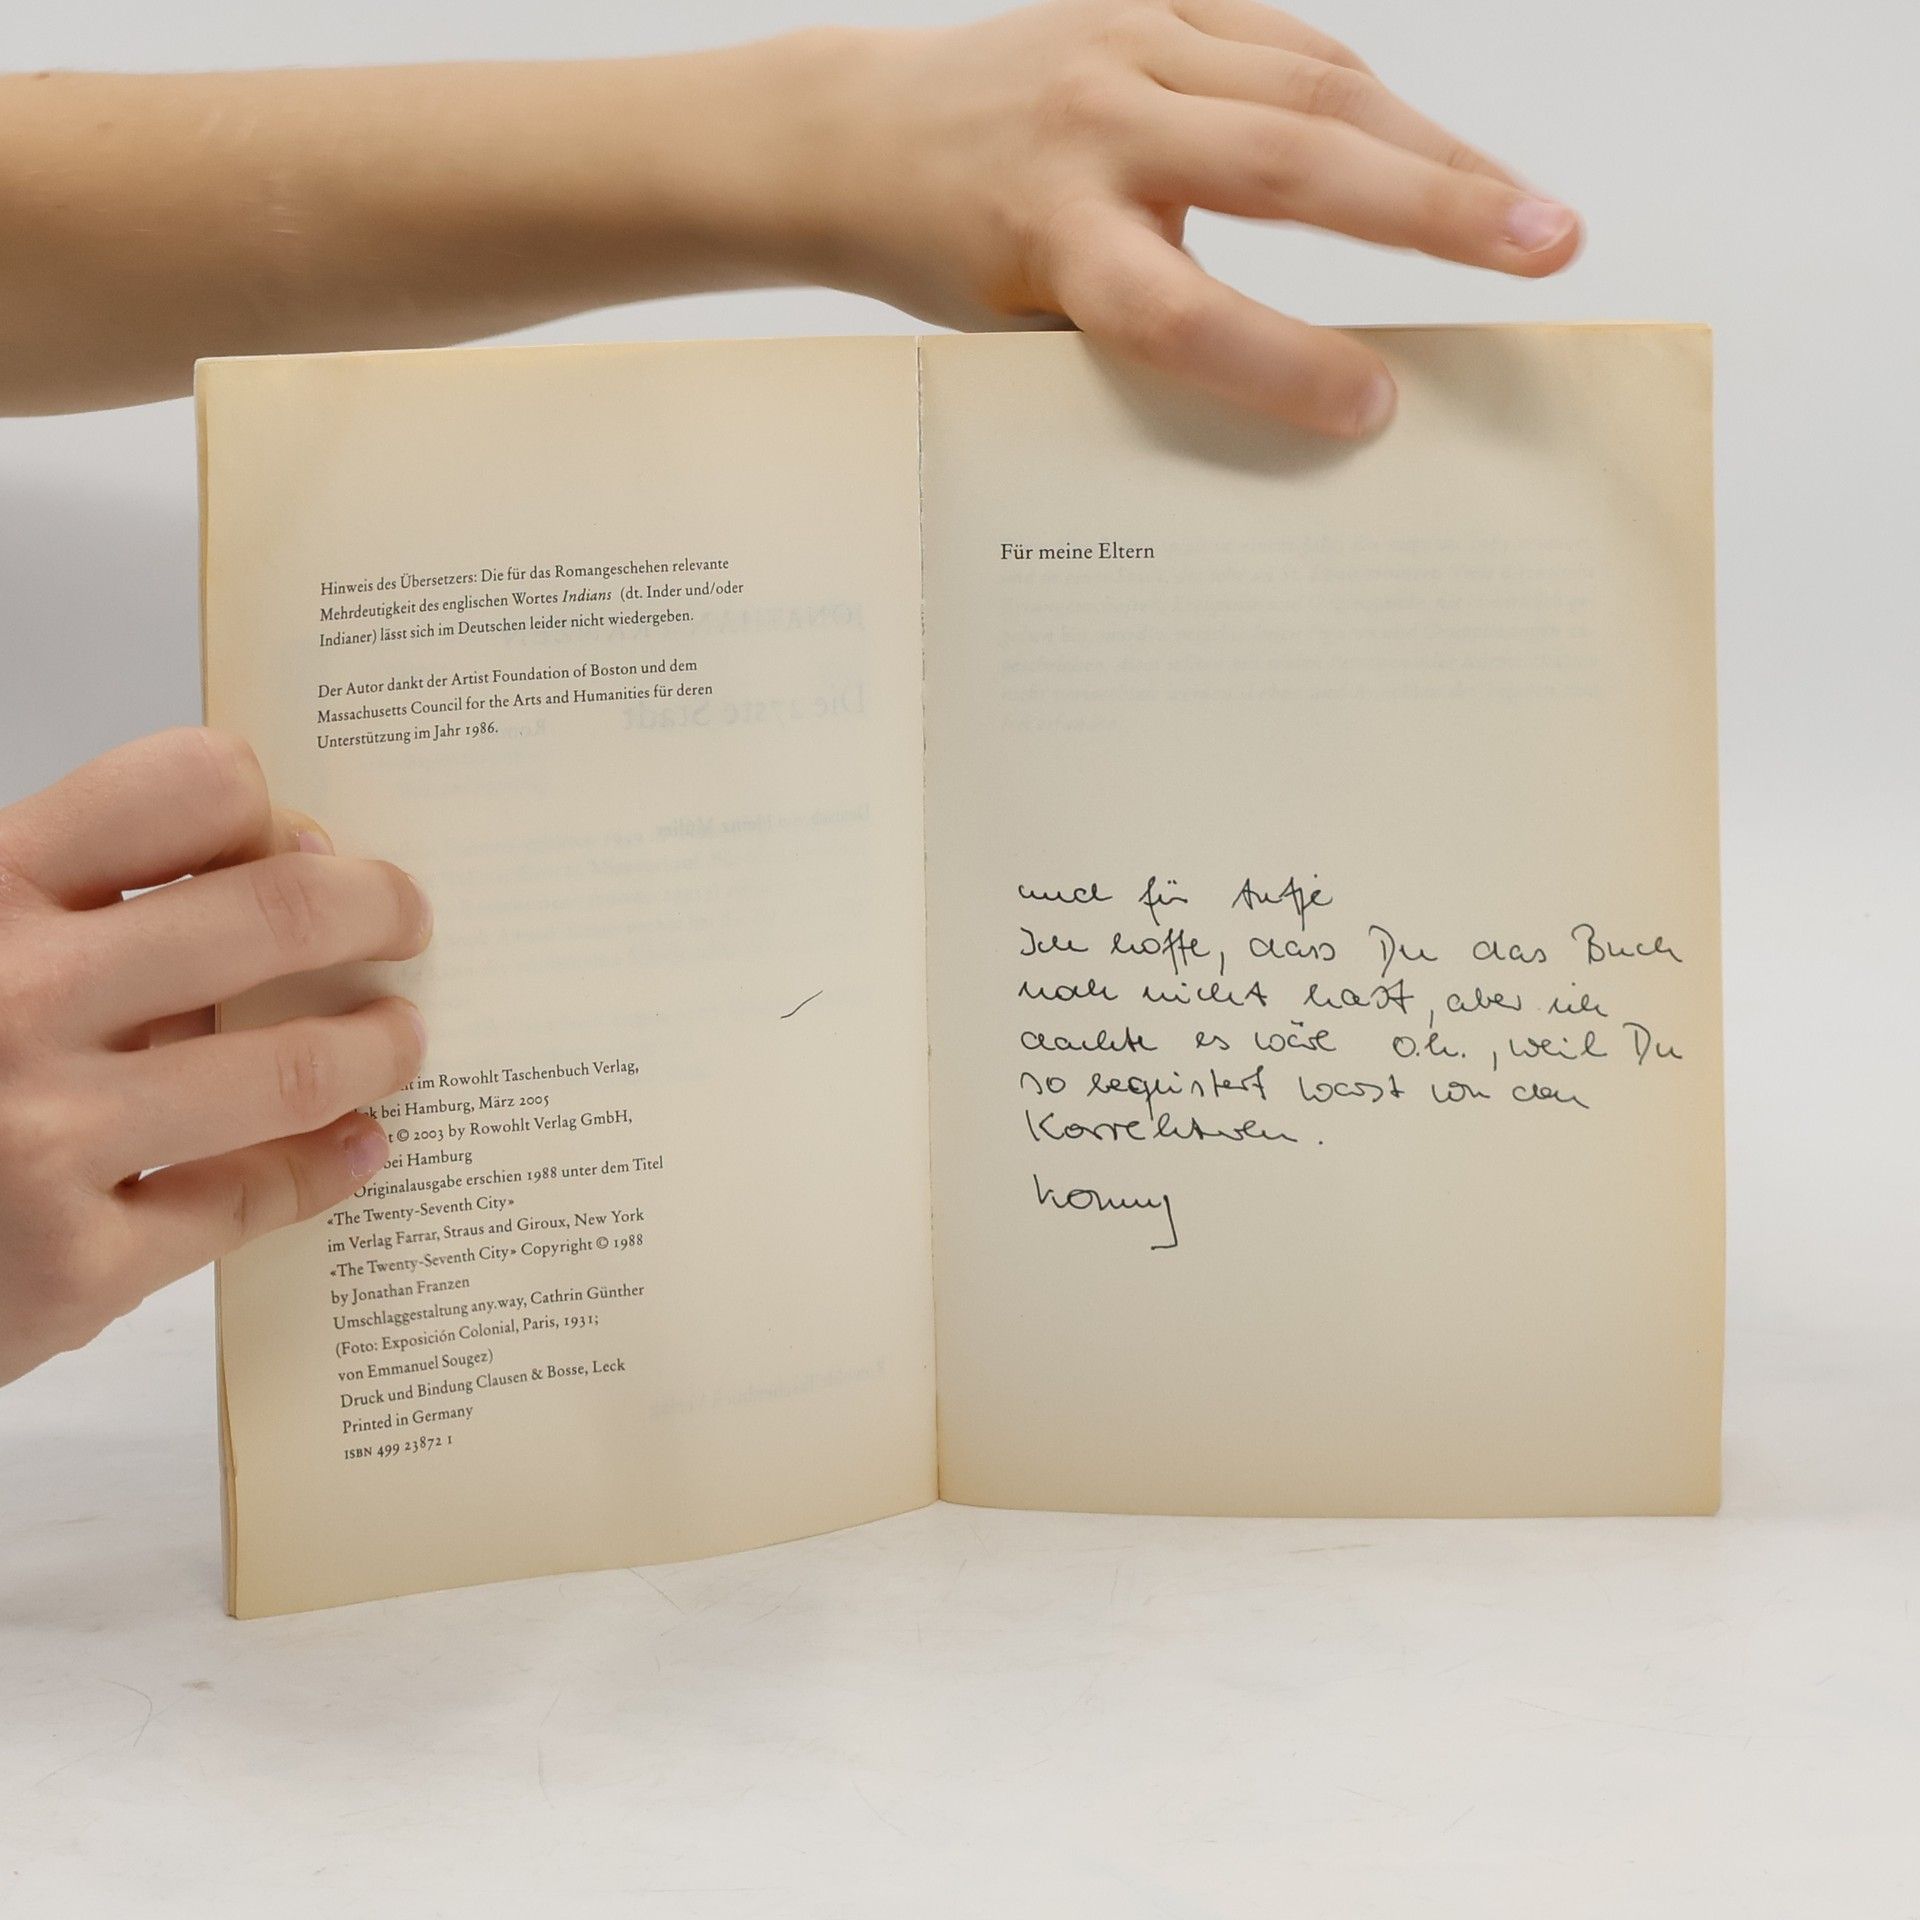 Hinweis des Übersetzers: Die für das Romangeschehen relevante
Mehrdeutigkeit des englischen Wortes Indians (dt. Inder und/oder
Indianer) lässt sich im Deutschen leider nicht wiedergeben.
Der Autor dankt der Artist Foundation of Boston und dem
Massachusetts Council for the Arts and Humanities für deren
Unterstützung im Jahr 1986.
im Rowohlt Taschenbuch Verlag,
bei Hamburg, März 2005
© 2003 by Rowohlt Verlag GmbH,
bei Hamburg
Originalausgabe erschien 1988 unter dem Titel
«The Twenty-Seventh City»
im Verlag Farrar, Straus and Giroux, New York
«The Twenty-Seventh City» Copyright © 1988
by Jonathan Franzen
Umschlaggestaltung any.way, Cathrin Günther
(Foto: Exposición Colonial, Paris, 1931;
von Emmanuel Sougez)
Druck und Bindung Clausen & Bosse, Leck
Printed in Germany
ISBN 499 23872 1
Für meine Eltern
und für Antje
Ich hoffe, dass Du das Buch
noch nicht hast, aber ich
dachte es wäre o.k., weil Du
so begeistert warst von den
Korrekturen.